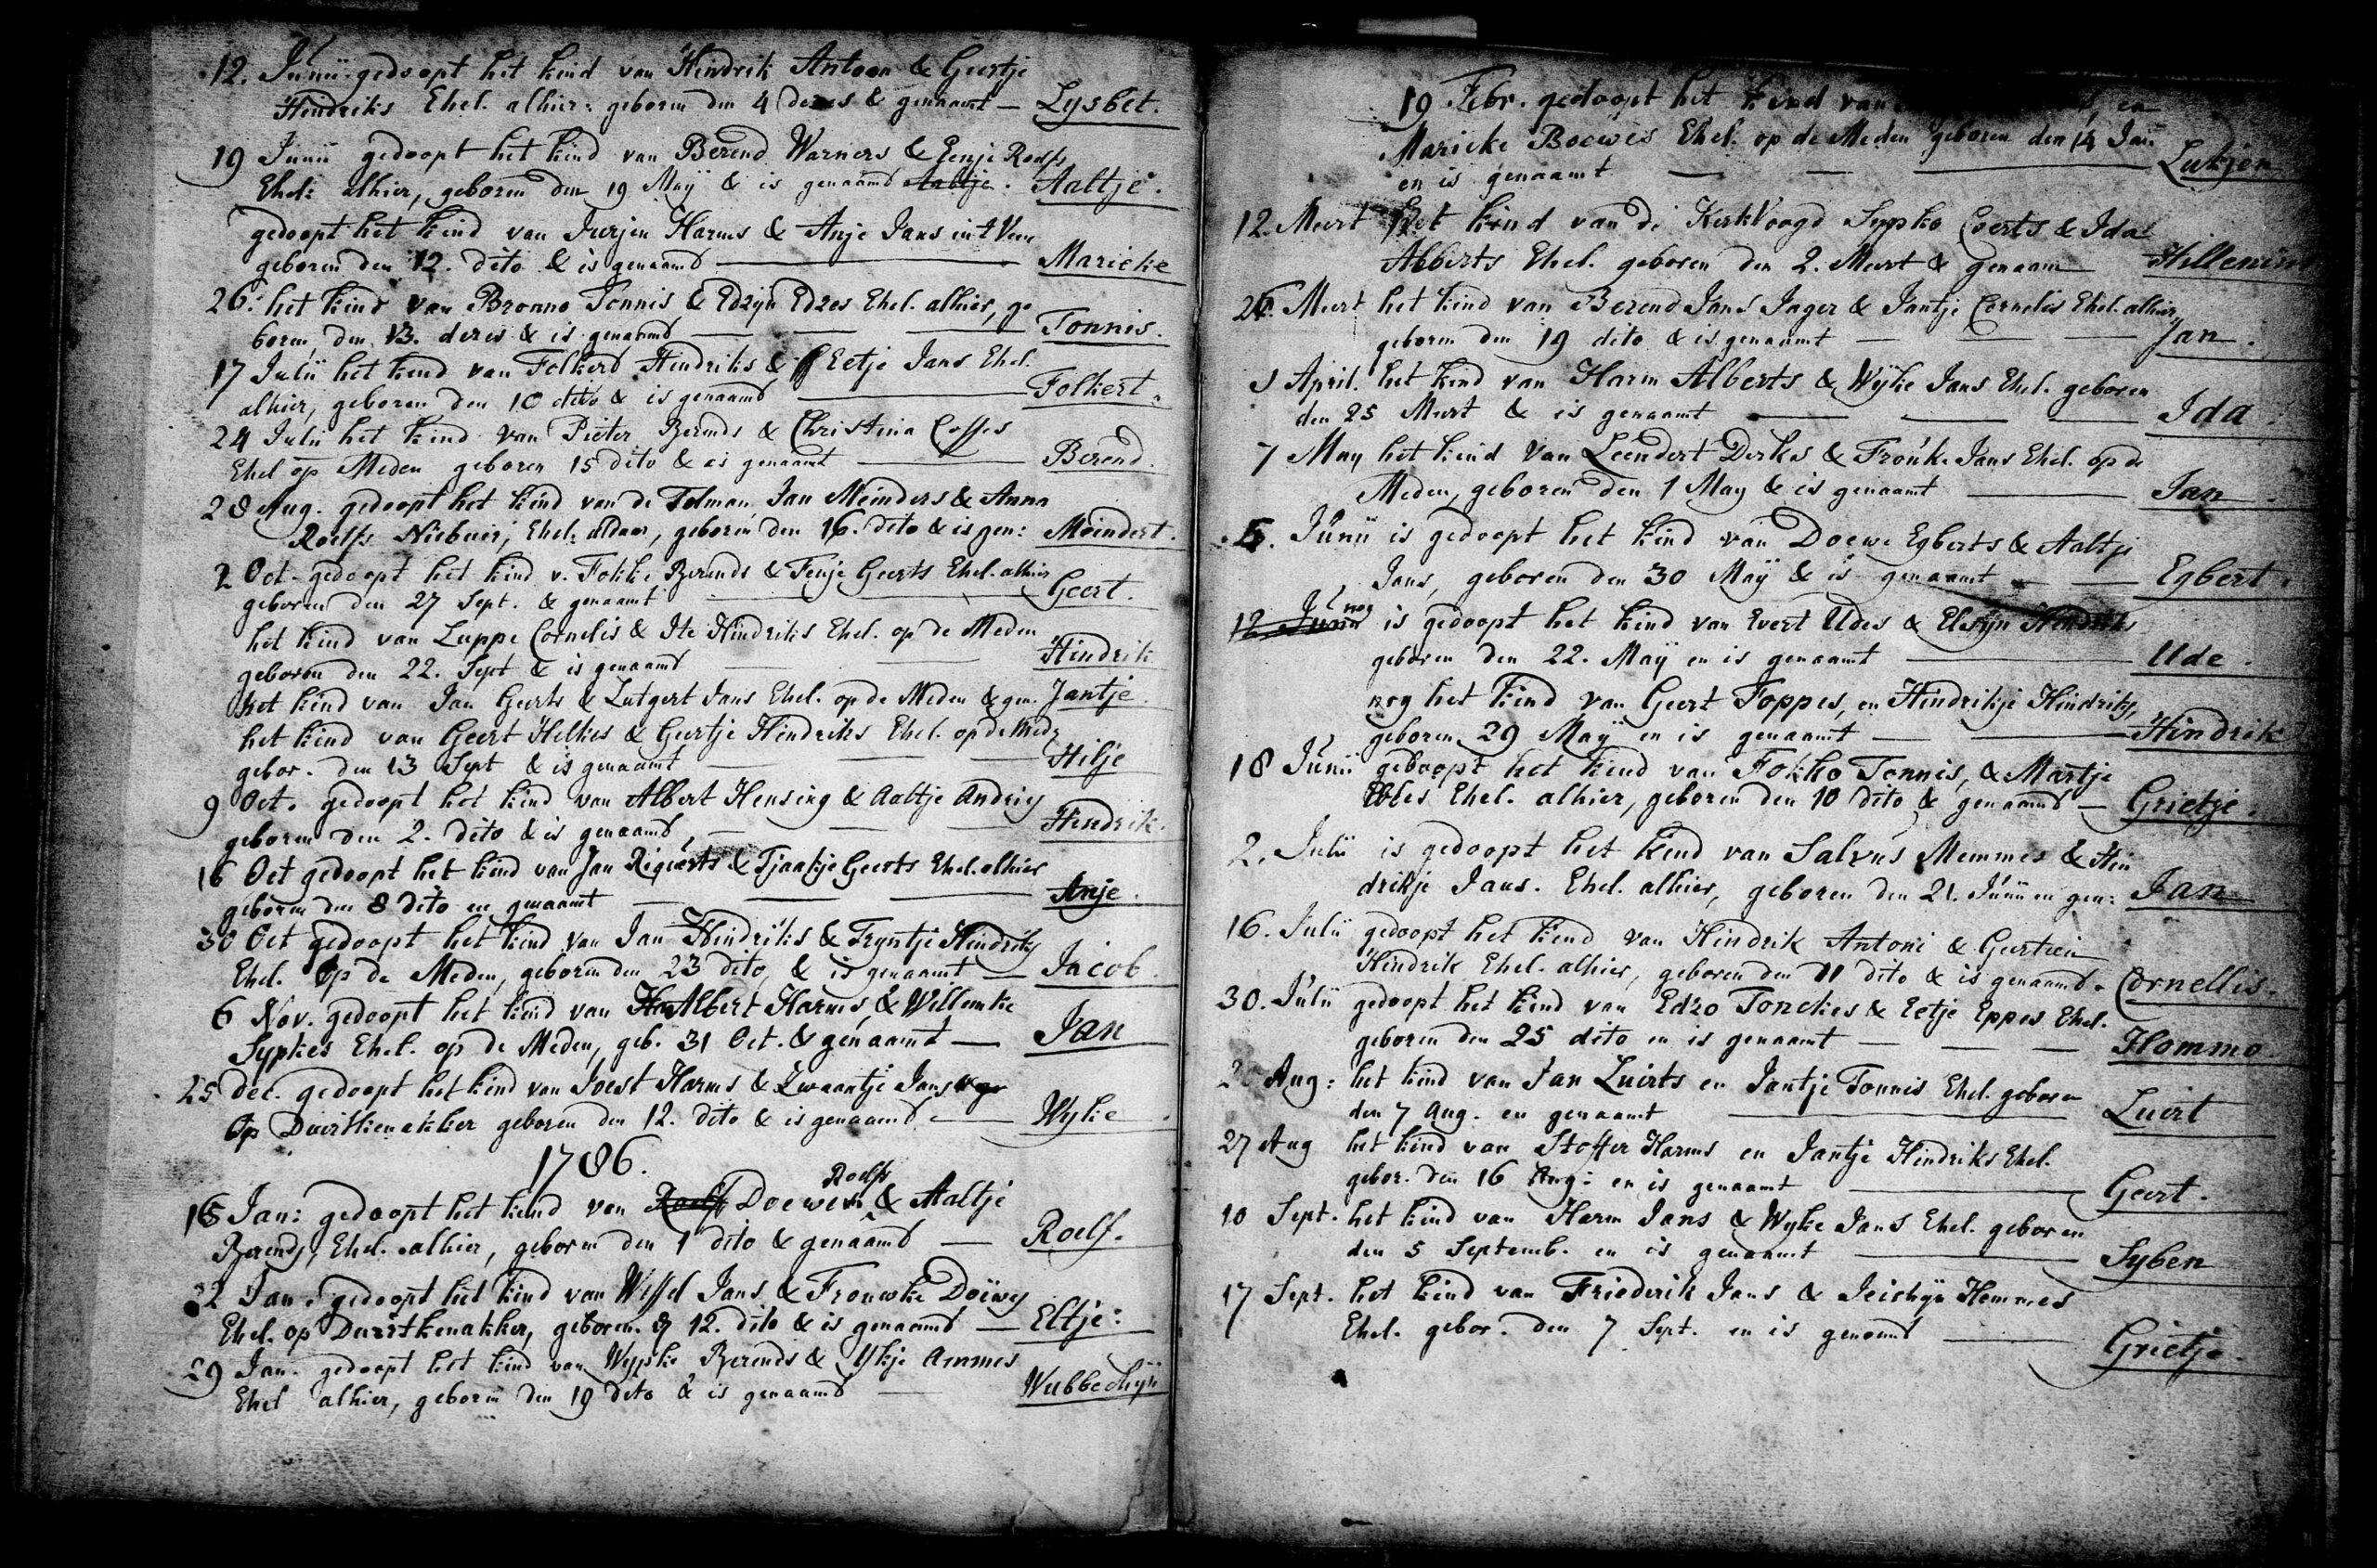 12. Junii gedoopt het kind van Hindrik Antoon & Geertje
Hindriks Ehel. alhier: geboren den 4 deses & genaamt — Lysbet.
19 Junii gedoopt het kind van Berend Warners & Eenje Roelfs
Ehel: alhier, geboren den 19 Maÿ & is genaamd Aaltje. Aaltje.
gedoopt het kind van Jurjen Harms & Anje Jans in't Veen
geboren den 12. dito & is genaamd — Marieke
26: het kind van Bronno Tonnis & Edzijn Edzes Ehel. alhier, ge
boren, den 13. deses & is genaamd — Tonnis.
17 Julii het kind van Folkerd Hindriks & Eetje Jans Ehel.
alhier, geboren den 10 dito & is genaamd — Folkert.
24 Julii het kind van Pieter Berends & Christina
Ehel op Meden geboren 15 dito & is genaamt — Berend.
28 Aug. gedoopt het kind van de Jan Meinders & Anna
Roelfs Niebuir, Ehel. aldaar, geboren den 16. dito & is gen: Meindert.
2 Oct. gedoopt het kind v. Fokke Berends & Fenje Geerts Ehel. alhier
geboren den 27 Sept. & genaamt — Geert.
het kind van Luppe Cornelis & Ite Hindriks Ehel. op de Meden
geboren den 22. Sept & is genaamd — Hindrik
het kind van Jan Geerts & Lutgert Jans Ehel. op de Meden & gen. Jantje.
het kind van Geert Helkes & Geertje Hindriks Ehel. op de Mede
gebor. den 13 Sept & is genaamt — Hilje
9 Oct. gedoopt het kind van Albert Hensing & Aaltje Andries
geboren den 2. dito & is genaamd, — Hindrik.
16 Oct gedoopt het kind van Jan & Tjaakje Geerts Ehel. alhier
geboren den 8 dito en genaamt — Anje.
30 Oct gedoopt het kind van Jan Hindriks & Tryntje Hindriks
Ehel. op de Meden, geboren den 23 dito, & is genaamt — Jacob.
6 Nov. gedoopt het kind van Albert Harms, & Willemke
Sypkes Ehel. op de Meden, geb. 31 Oct. & genaamt — Jan
25 dec. gedoopt het kind van Joest Harms & Zwaantje Jans
Op Duirtkenakker geboren den 12. dito & is genaamd — Wyke
1786.
Roelfs
15 Jan: gedoopt het kind van Roelf Doewes & Aaltje
Berends, Ehel. alhier, geboren den 1 dito & genaamd — Roelf.
22 Jan. gedoopt het kind van Wessel Jans & Frouwke Doewes
Ehel. op Duurtkenakker, geboren. 12. dito & is genaamd — Eltje:
29 Jan. gedoopt het kind van Wypke Berends & Ykje Ammes
Ehel alhier, geboren den 19 dito & is genaamd — Wubbechijn
19 Febr. gedoopt het kind van en
Marieke Boewes Ehel. op de Meden geboren den 14 Jan:
en is genaamt — Lukjen
12. Meert Het kind van de KerkVoogd Sypko Everts & Ida
Abberts Ehel. geboren den 2. Meert & genaam — Hillenius
26. Meert het kind van Berend Jans Jager & Jantje Cornelis Ehel. alhier,
geboren den 19 dito & is genaamt — Jan.
April. het kind van Harm Alberts & Wijke Jans Ehel. geboren
den 25 Meert & is genaamt — Ida.
7 May het kind van Leendert Derks & Frouke Jans Ehel. op de
Meden, geboren den 1 May & is genaamt — Jan.
5. Junii is gedoopt het kind van Doewe Egberts & Aaltje
Jans, geboren den 30 Maÿ & is genaamt — Egbert.
12 Junii nog is gedoopt het kind van Evert Udes & Elsijn Hindriks
geboren den 22. Maÿ en is genaamt — Ude.
nog het kind van Geert Foppes, en Hindrikje Hindriks,
geboren 29 Maÿ en is genaamt — Hindrik
18 Junii gedoopt het kind van Fokko Tonnis, & Martje
Ebles Ehel. alhier, geboren den 10 dito & genaamd — Grietje.
2. Julii is gedoopt het kind van Salvus Memmes & Hin
drikje Jans. Ehel. alhier, geboren den 21. Junii en gen: Jan
16. Julii gedoopt het kind van Hindrik Antoni & Geertien
Hindrik Ehel. alhier, geboren den 11 dito & is genaamd. Cornellis.
30. Julii gedoopt het kind van Edzo Tonckes & Eetje Eppes Ehel.
geboren den 25 dito en is genaamt — Hommo
Aug: het kind van Jan Luirts en Jantje Tonnis Ehel. geboren
den 7 Aug. en genaamt — Luirt
27 Aug het kind van Stoffer Harms en Jantje Hindriks Ehel.
gebor. den 16 Aug: en is genaamt — Geert.
10 Sept. het kind van Harm Jans & Wyke Jans Ehel. geboren
den 5 Septemb. en is genaamt — Syben
17 Sept. het kind van Friederik Jans & Hemmes
Ehel. gebor. den 7 Sept. en is genaamd — Grietje.